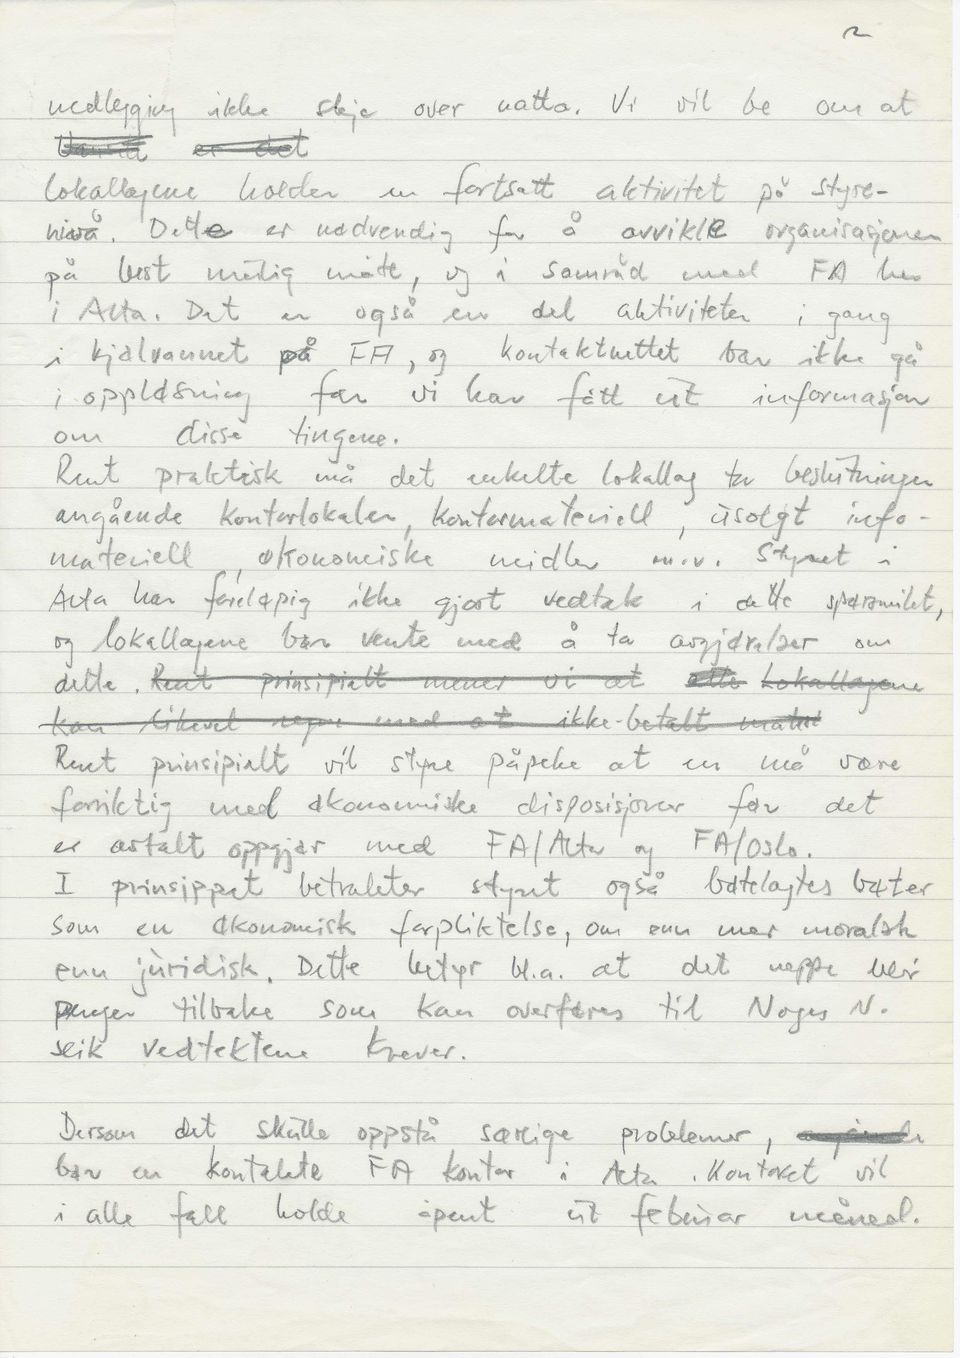 2
nedlegging ikke skje over natta. Vi vil be om at
lokallagene holder en fortsatt aktivitet på styre-
nivå. Dette er nødvendig for å avvikle organisasjonen
på best mulig måte, og i samråd med FA her
i Alta. Det er også en del aktiviteter i gang
i kjølvannet på FA, og kontaktnettet bør ikke gå
i oppløsning før vi har fått ut informasjon
om disse tingene.
Rent praktisk må det enkelte lokallag ta beslutninger
angående kontorlokaler, kontormateriell, usolgt info-
materiell, økonomiske midler m.v. Styret i
Alta har foreløpig ikke gjort vedtak i dette spørsmålet,
og lokallagene bør vente med å ta avgjørelser om
dette. Rent prinsipialt mener vi at alle lokallagene
kan likevel regne med at ikke-betalt
Rent prinsipialt vil styre påpeke at en må være
forsiktig med økonomiske disposisjoner før det
er avtalt oppgjør med FA/Alta og FA/Oslo.
I prinsippet betrakter styret også bøtelagtes bøter
som en økonomisk forpliktelse, om enn mer moralsk
enn juridisk. Dette betyr bl.a. at det neppe blir
penger tilbake som kan overføres til Noges N.
slik vedtektene krever.
Dersom det skulle oppstå særlige problemer,
bør en kontakte FA kontor i Alta. Kontoret vil
i alle fall holde åpent ut februar måned.